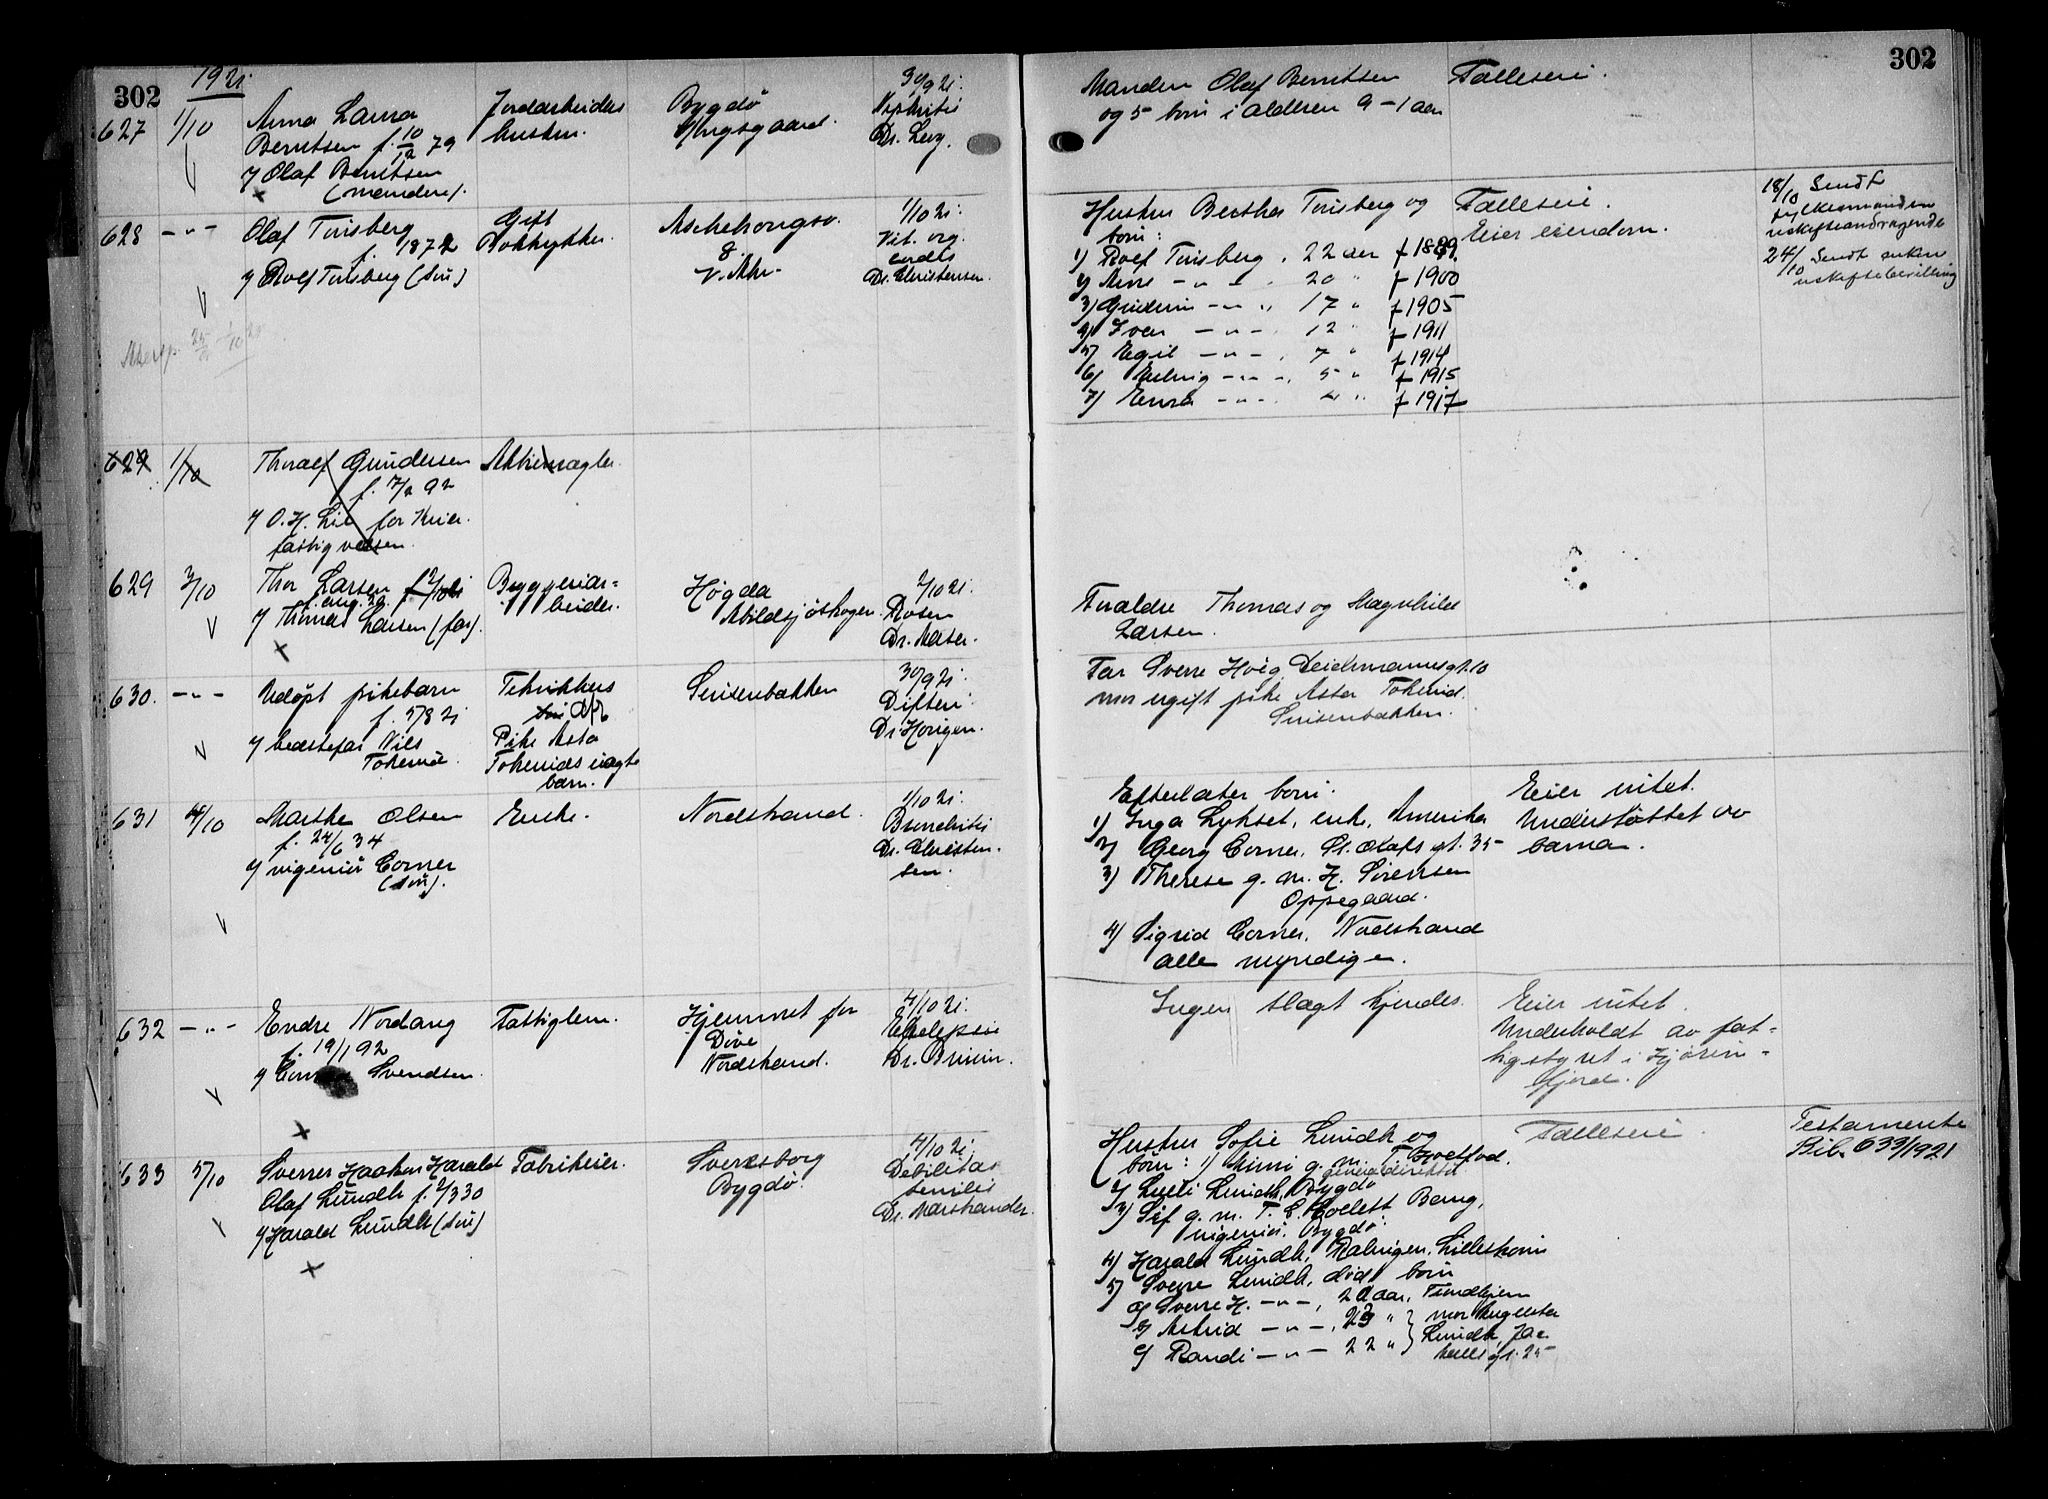 302
1921
627 1/10 Anna Laura
Berntsen f. 10/12 79
v/ Olaf Berntsen
(manden).
Jordarbeiders
hustru.
Bygdø
Kongsgaard.
30/9 21.
Nephritis
Dr. Levy.
Manden Olaf Berntsen
og 5 børn i alderen 9-1 aar
Fælleseie.
302
628 -"- Olaf Tinsberg
f. 1872
v/ Rolf Tinsberg (søn)
Gift
Aschehougsv.
8.
V. Aker.
1/10 21.
Vit. org.
cordis
Dr. Christensen.
Hustru Berthe Tinsberg og
børn:
1) Rolf Tinsberg, 22 aar f 1899.
2) Arne -"- 20 " f 1900
3) Gudrun -"- 17 " f 1905
4) Iver -"- 12 " f 1911
5) Egil -"- 7 " f 1914
6) Solveig -"- 5 " f 1915
7) Erna -"- 4 " f 1917
Fælleseie.
Eier eiendom.
18/10 Sendt
fylkesmanden
uskifteandragende
24/10 Sendt enken
uskiftebevilling
629 1/10 Thoralf Gundersen
f. 7/2 92
v/ O. H. Lie for Kria.
fattigvæsen.
Aktiemægler.
629 3/10 Thor Larsen f 2/10 21
f. aug. 20.
v/ Thomas Larsen (far).
Byggeriar-
beider.
Høgda
Abildsjøskogen.
2/10 21.
Rosen
Dr. Aaser.
Foraldre Thomas og Magnhild
Larsen.
630. -"- Udøpt pikebarn
f. 5/8 21
v/ bedstefar Nils
Tokerud.
Pike Asta
Tokeruds uegte
barn.
Sinsenbakken
30/9 21.
Difteri.
Dr. Horigen.
Far Sverre Hoëg, Deichmannsgt. 10
mor ugift pike Asta Tokerud.
Sinsenbakken.
631 4/10 Marthe Olsen
f. 24/6 34
v/ ingeniør Corner
(søn).
Enke.
Nordstrand.
1/10 21.
Bronchitis
Dr. Christen-
sen.
Efterlater børn:
1) Inga Lykset, enke, Amerika
2) Georg Corner, St. Olafs gt. 35
3) Therese g. m. H. Sørensen
Oppegaard.
4) Sigrid Corner, Nordstrand
alle myndige.
Eier intet.
Understøttet av
barna.
632 -"- Endre Nordang
f. 19/1 92
Svendsen.
Fattiglem.
Hjemmet for
Døve
Nordstrand.
4/10 21.
Epilepsie
Dr. Bruun.
Ingen slagt kjendes.
Eier intet.
Underholdt av fat-
tigstyret i Hjørin-
fjord.
633 5/10 Sverre Haaken Harald
Olaf Lundh f. 2/3 30
v/ Harald Lundh (søn)
Fabrikeier.
Sverresborg
Bygdø.
4/10 21.
Debilitas
senilis
Dr. Marstrander.
Hustru Sofie Lundh og
børn: 1) Mimi g. m. T. Broetfod,
generaldirektør
2) Lulli Lundh, Bygdø
3) Sif g. m. T. C. Collett Bang,
ingeniør. Bygdø.
4) Harald Lundh, Rælingen, Lillestrøm
5) Sverre Lundh, død, børn
a) Sverre H. -"-, 20 aar, Trondhjem
b) Astrid -"-, 23 " mor Augusta
c) Randi -"- 22 " Lundh, Jac.
Aalls gt. 25
Fælleseie.
Testamente
Bil. 633/1921